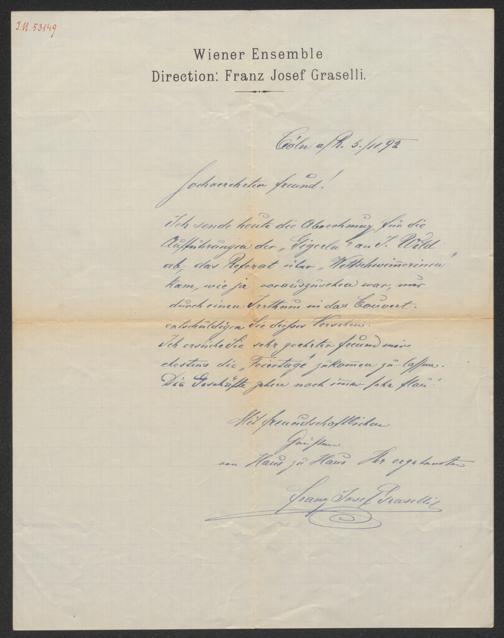 J.N. 53149
Wiener Ensemble
Direction: Franz Josef Graselli.
Cöln a/Rh. 5./11 92
Hochverehrter Freund!
Ich sende heute die Abrechnung für die
Aufführungen der „Gigerln" an J. Wild
ab, das Referat über „Wettschwimmerinnen"
kam, wie ja vorauszusehen war, nur
durch einen Irrthum in das Couvert.
entschuldigen Sie dieses Versehen.
Ich ersuche Sie sehr geehrter Freund mir
ehestens die „Feiertage" zukommen zu lassen.
Die Geschäfte gehen noch immer sehr flau!
Mit freundschaftlichen
Grüßen
von Haus zu Haus Ihr ergebenster
Franz Josef Graselli